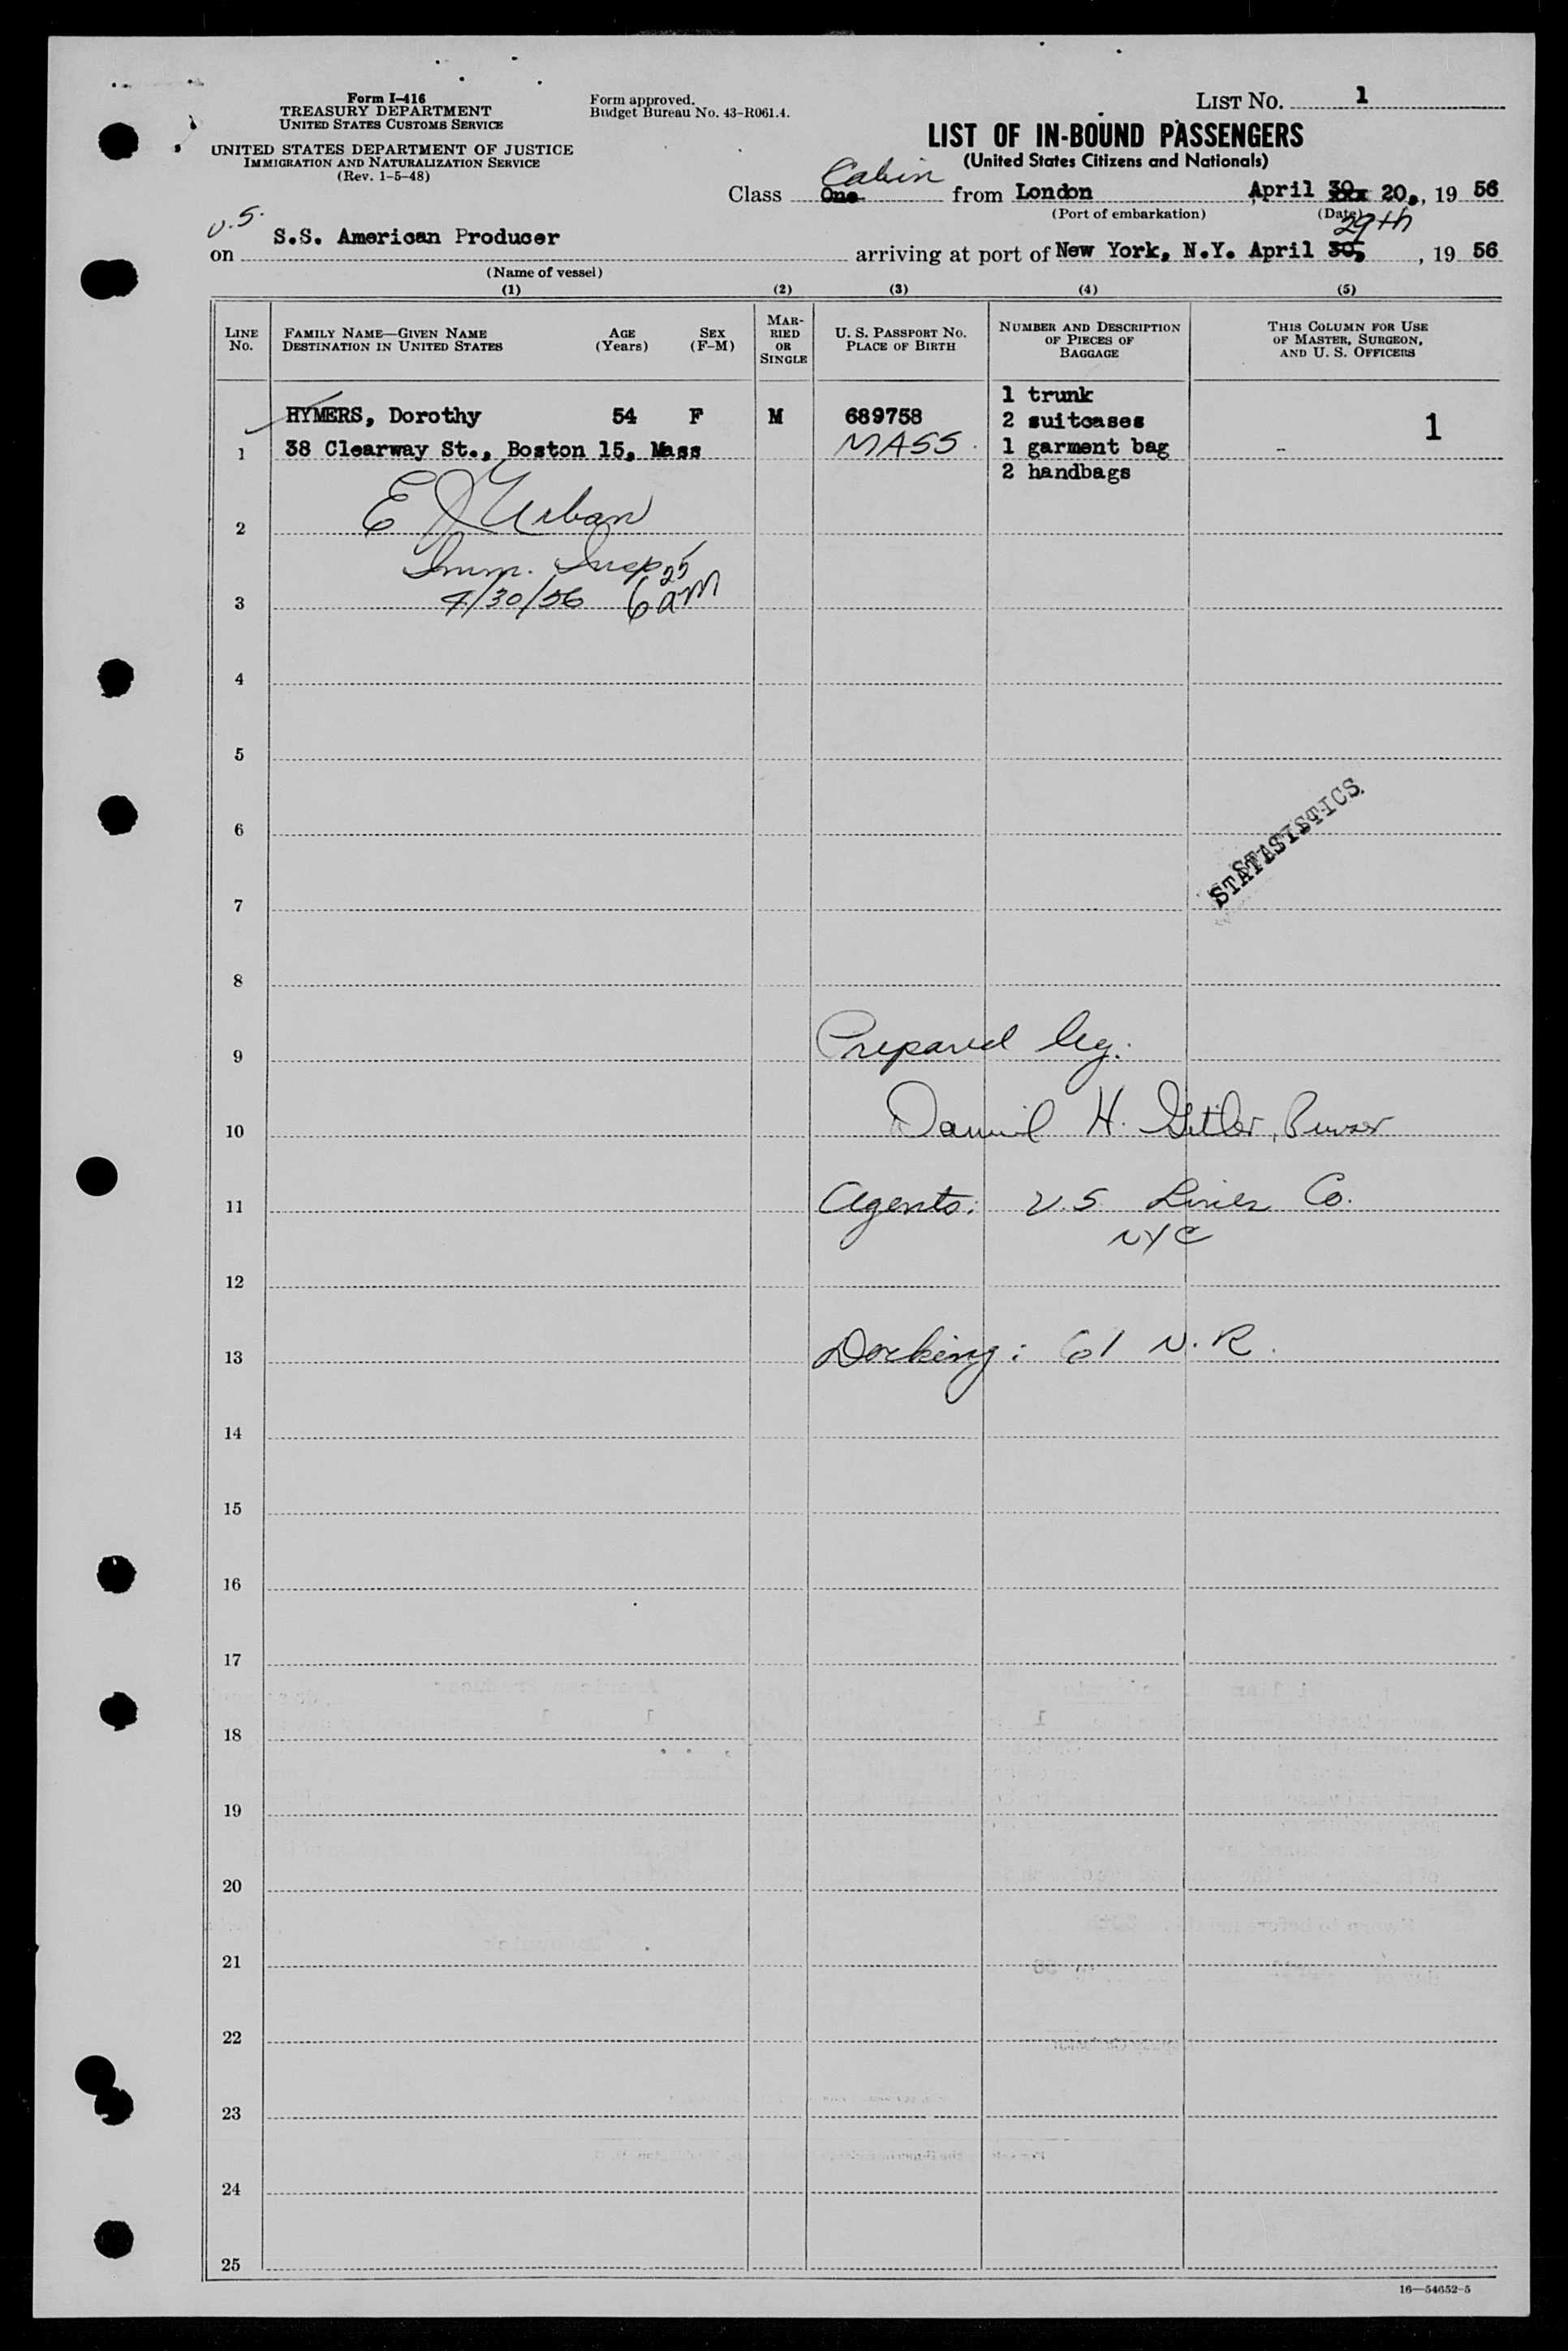 Form I-416
TREASURY DEPARTMENT
UNITED STATES CUSTOMS SERVICE
UNITED STATES DEPARTMENT OF JUSTICE
IMMIGRATION AND NATURALIZATION SERVICE
(Rev. 1-5-48)
Form approved.
Budget Bureau No. 43-R061.4.
LIST NO. 1
LIST OF IN-BOUND PASSENGERS
(United States Citizens and Nationals)
Cabin
Class One from London April 30x 20., 19 56
(Port of embarkation) (Date)
29th
U.S.
on S.S. American Producer arriving at port of New York, N.Y. April 30, , 19 56
(Name of vessel)
(1) (2) (3) (4) (5)
LINE NO.
FAMILY NAME—GIVEN NAME
DESTINATION IN UNITED STATES
AGE (Years)
SEX (F-M)
MARRIED OR SINGLE
U. S. PASSPORT NO.
PLACE OF BIRTH
NUMBER AND DESCRIPTION
OF PIECES OF
BAGGAGE
THIS COLUMN FOR USE
OF MASTER, SURGEON,
AND U. S. OFFICERS
1 trunk
HYMERS, Dorothy 54 F M 689758 2 suitcases 1
1 38 Clearway St., Boston 15, Mass MASS. 1 garment bag -
2 handbags
2 E J Urban
Imm. Insp
3 4/30/56 6 25 am
4
5
STATISTICS
STATISTICS
6
7
8
9 Prepared by:
10 Daniel H. Gitler, Purser
11 Agents: U.S. Lines Co.
NYC
12
13 Docking: 61 N.R.
14
15
16
17
18
19
20
21
22
23
24
25
16—54652-5